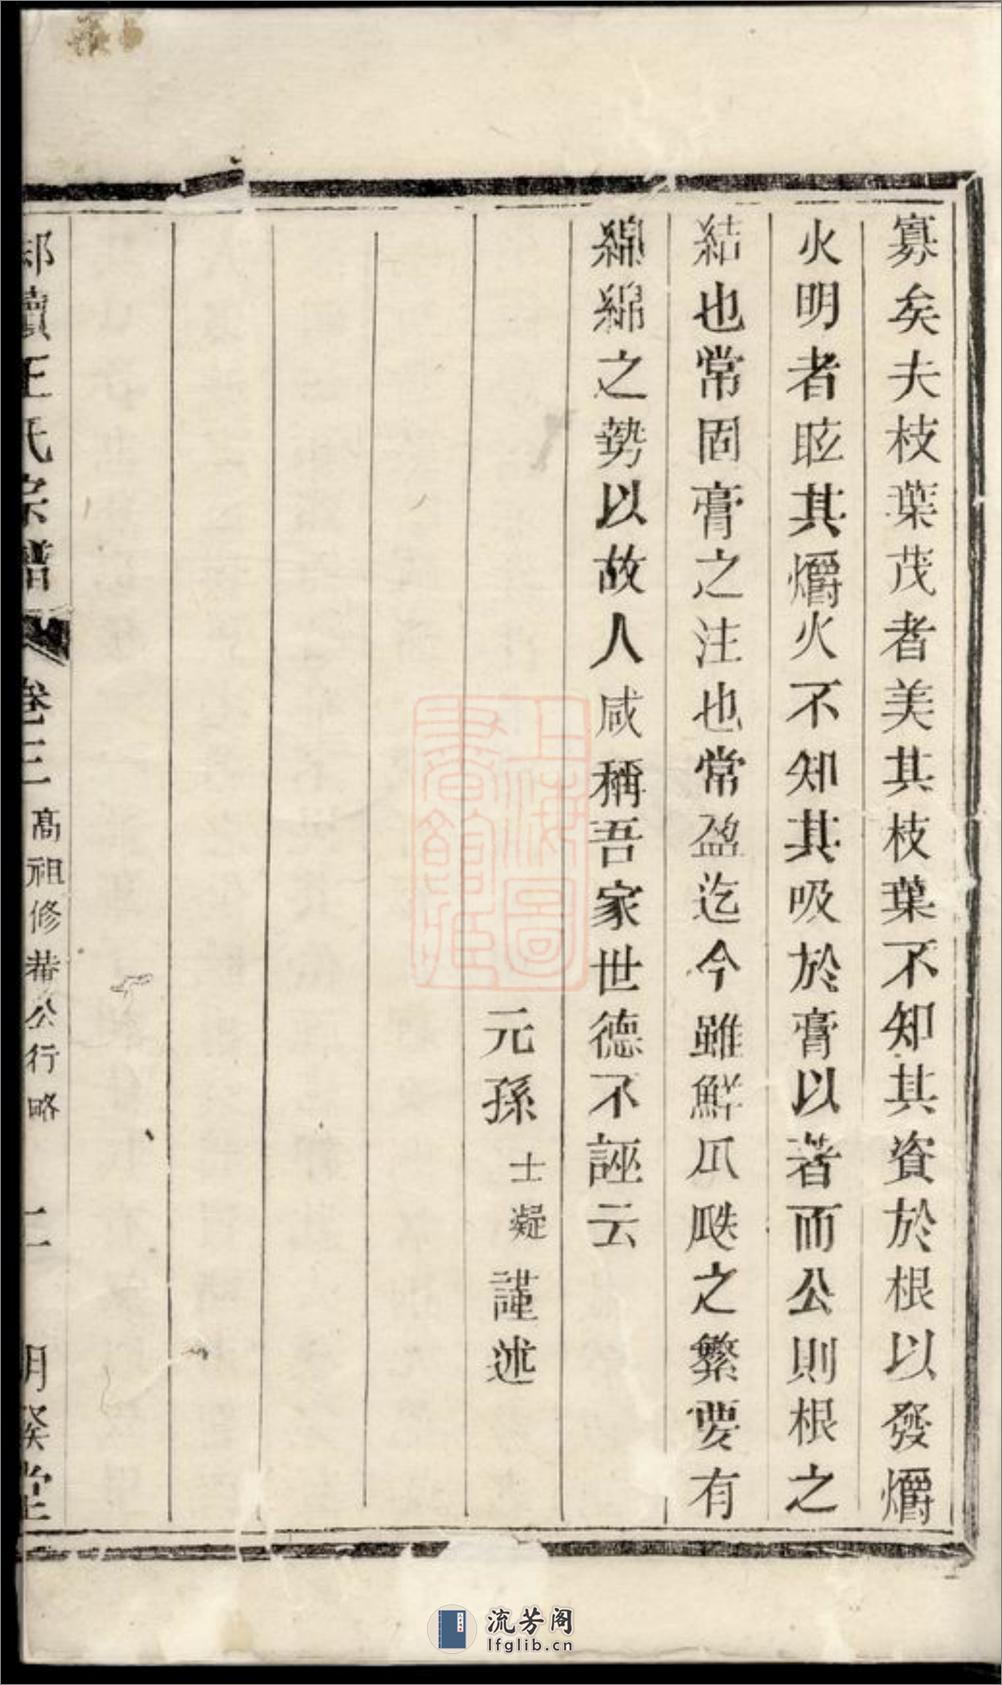 寡矣夫枝葉茂者美其枝葉不知其資於根以發爝
火明者眩其爝火不知其吸於膏以著而公則根之
結也常固膏之注也常盈迄今雖鮮瓜瓞之繁要有
綿綿之勢以故人咸稱吾家世德不誣云
元孫士凝謹述
續王氏宗譜 卷三 高祖修菴公行略 二 明發堂
上海圖書館藏
流芳阁
lfglib.cn